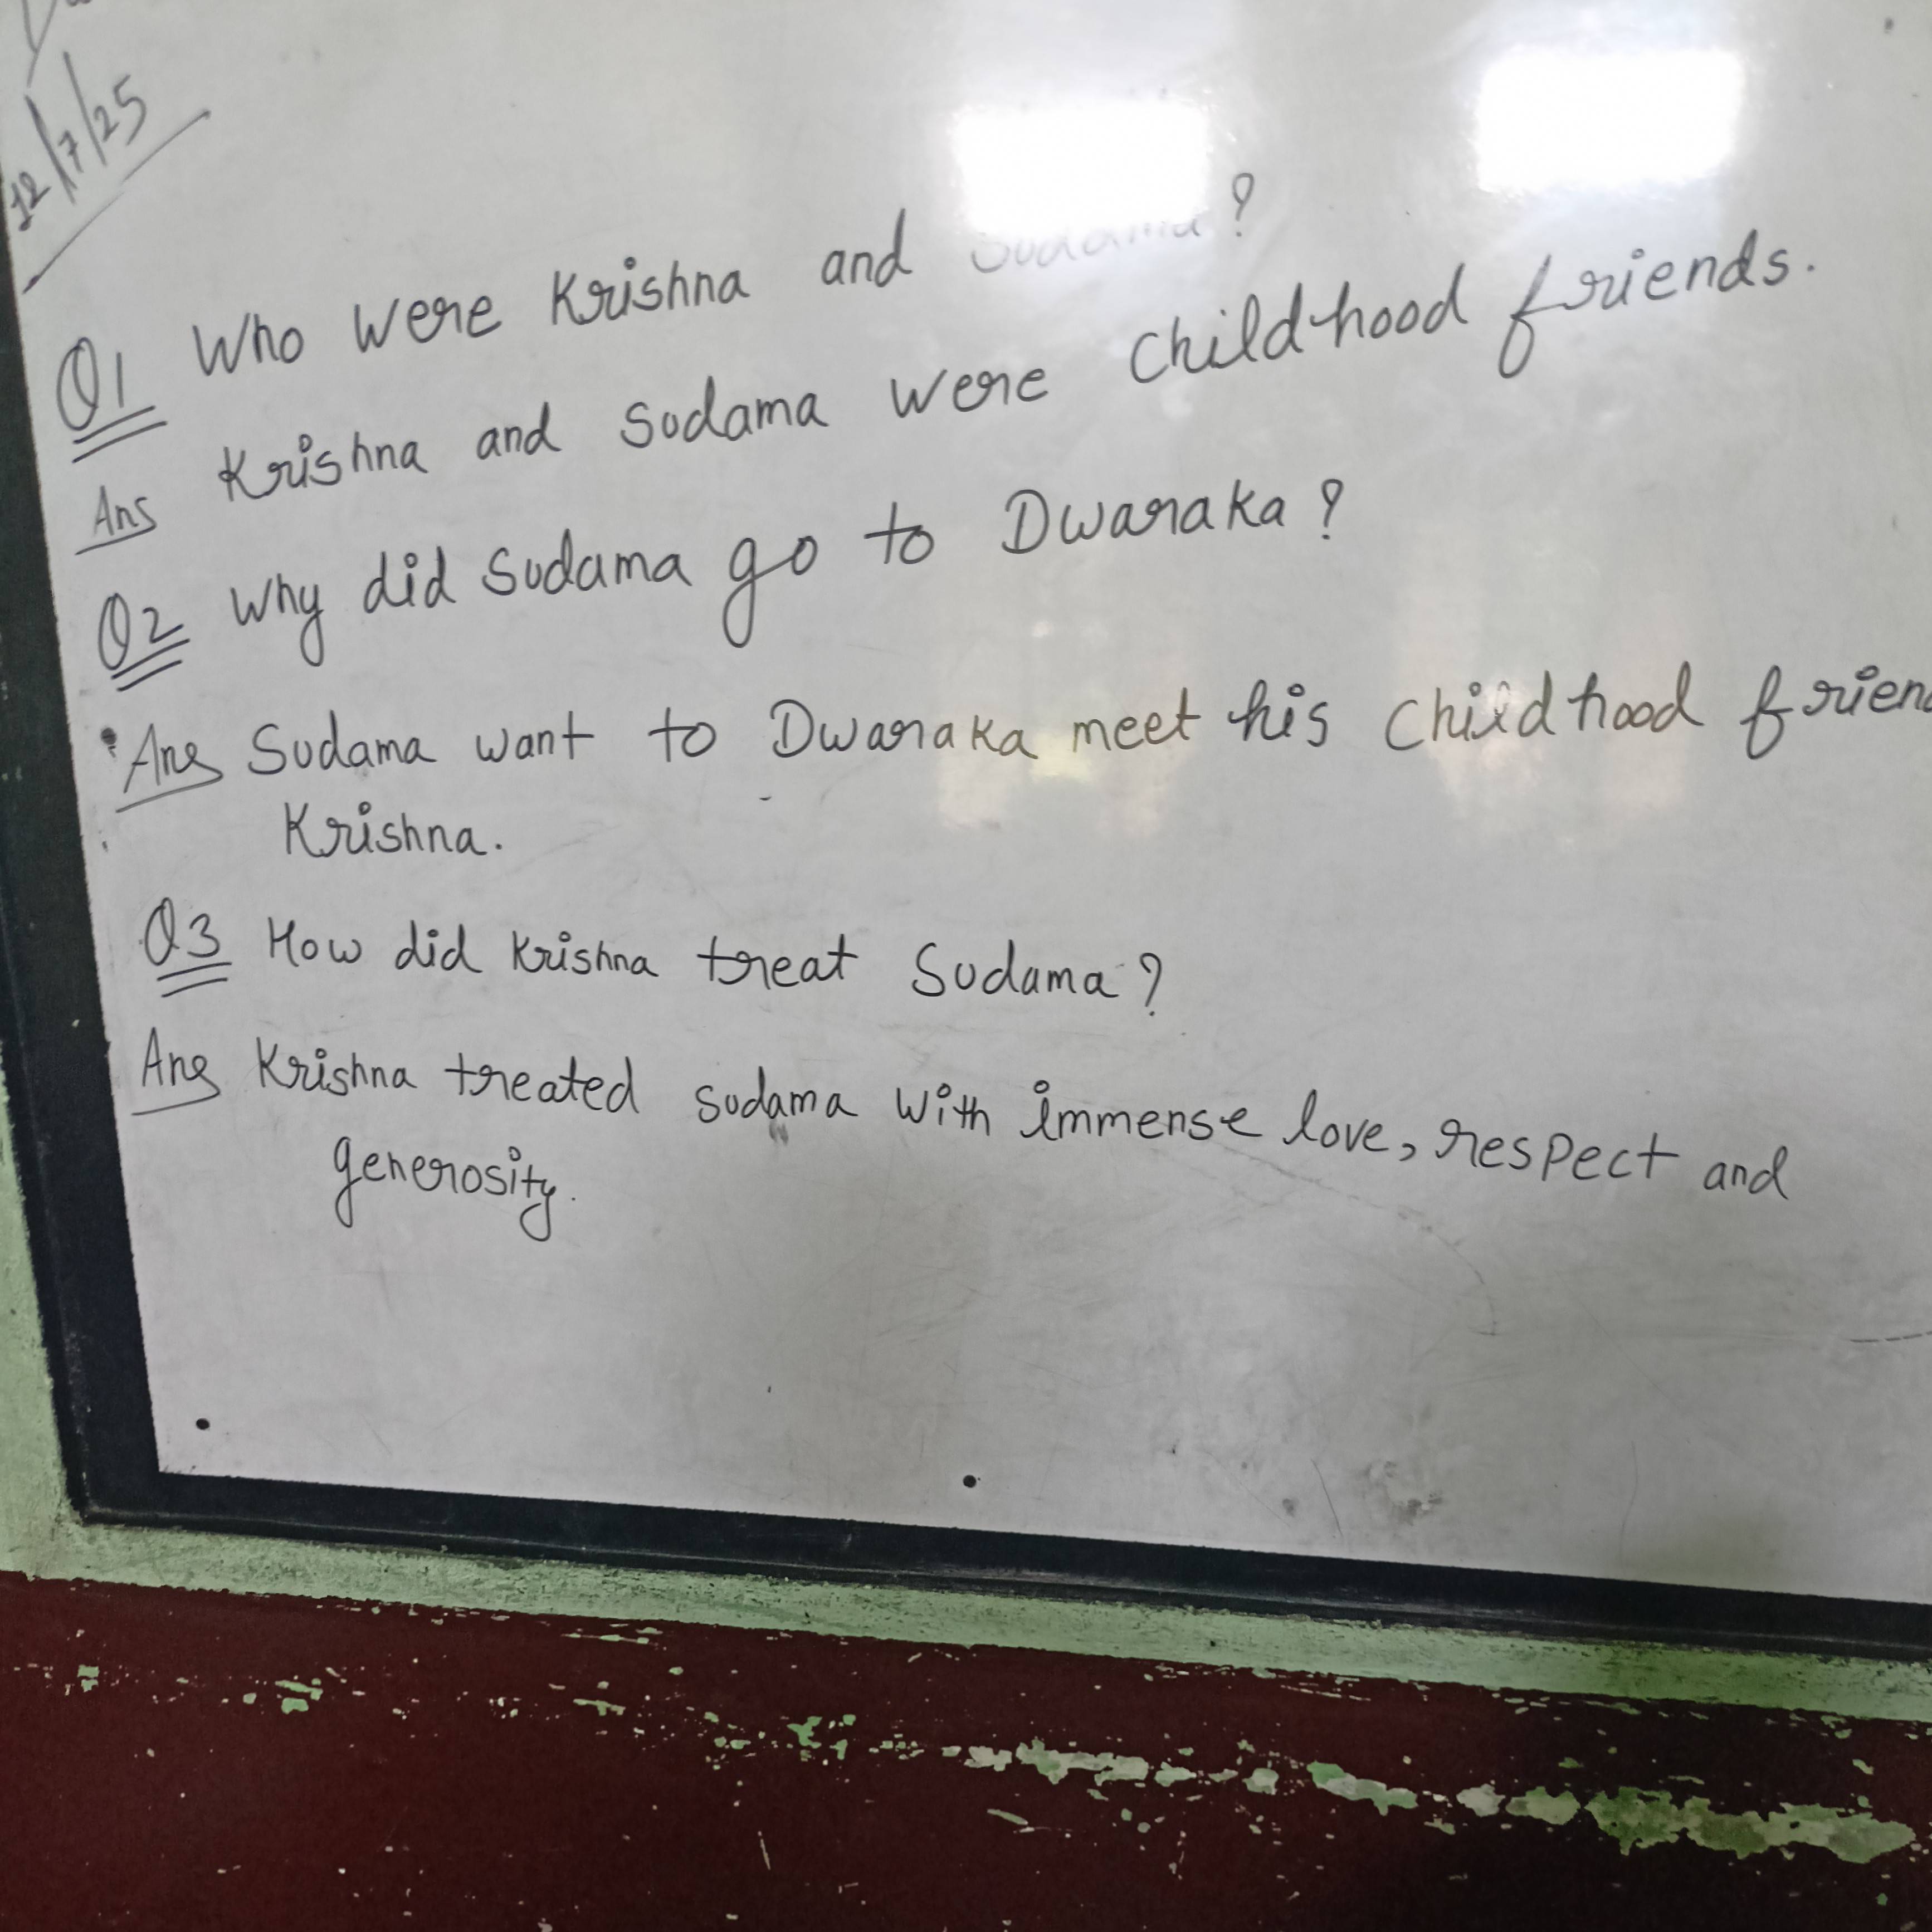 12/7/25
Q1 Who were Krishna and Sudama?
Ans Krishna and Sudama were childhood friends.
Q2 Why did Sudama go to Dwaraka?
Ans Sudama want to Dwaraka meet his childhood
Krishna.
Q3 How did Krishna treat Sudama?
Ans Krishna treated Sudama with immense love, respect and
generosity.